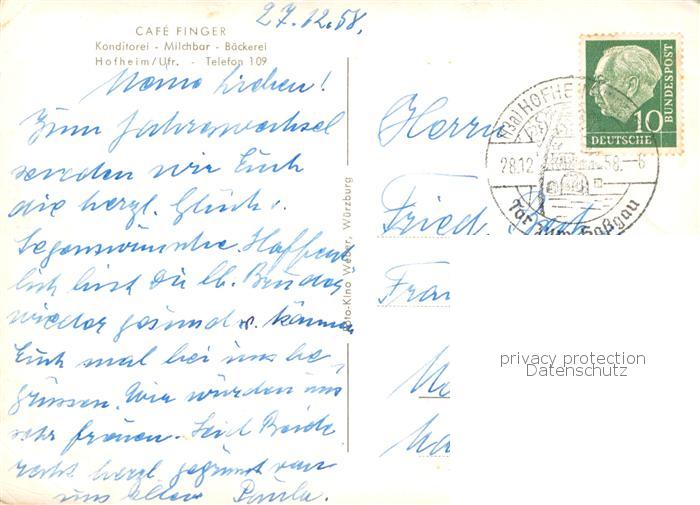 27.12.58.
CAFÉ FINGER
Konditorei - Milchbar - Bäckerei
Hofheim/Ufr. - Telefon 109
Meine Lieben!
Zum Jahreswechsel
senden wir Euch
die herzl. Glück-
Segenswünsche. Hoffent
lich bist Du lb. Bruder
wieder gesund u. können
Euch mal bei uns be
grüssen. Wir würden uns
sehr freuen. Seid Beide
recht herzl. gegrüsst von
uns allen Paula.
Foto-Kino Weber, Würzburg
Herrn
Fried
Fran
DEUTSCHE
BUNDESPOST
10
(13a) HOFHEIM
28.12 58.-6
Tor zum Haßgau
privacy protection
Datenschutz